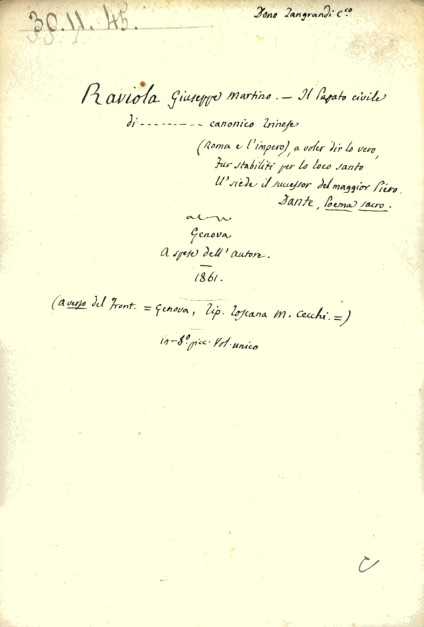 30.11.45.
Dono Zangrandi C.co
Raviola Giuseppe Martino. — Il Papato civile
di ---------- canonico Trinese
(Roma e l'impero), a voler dir lo vero,
Fur stabiliti per lo loco santo
U' siede il successor del maggior Piero.
Dante, Poema sacro.
Genova
A spese dell'autore.
1861.
(a verso del Front. = Genova, Tip. Toscana M. Cecchi. =)
in-8º picc. Vol. unico